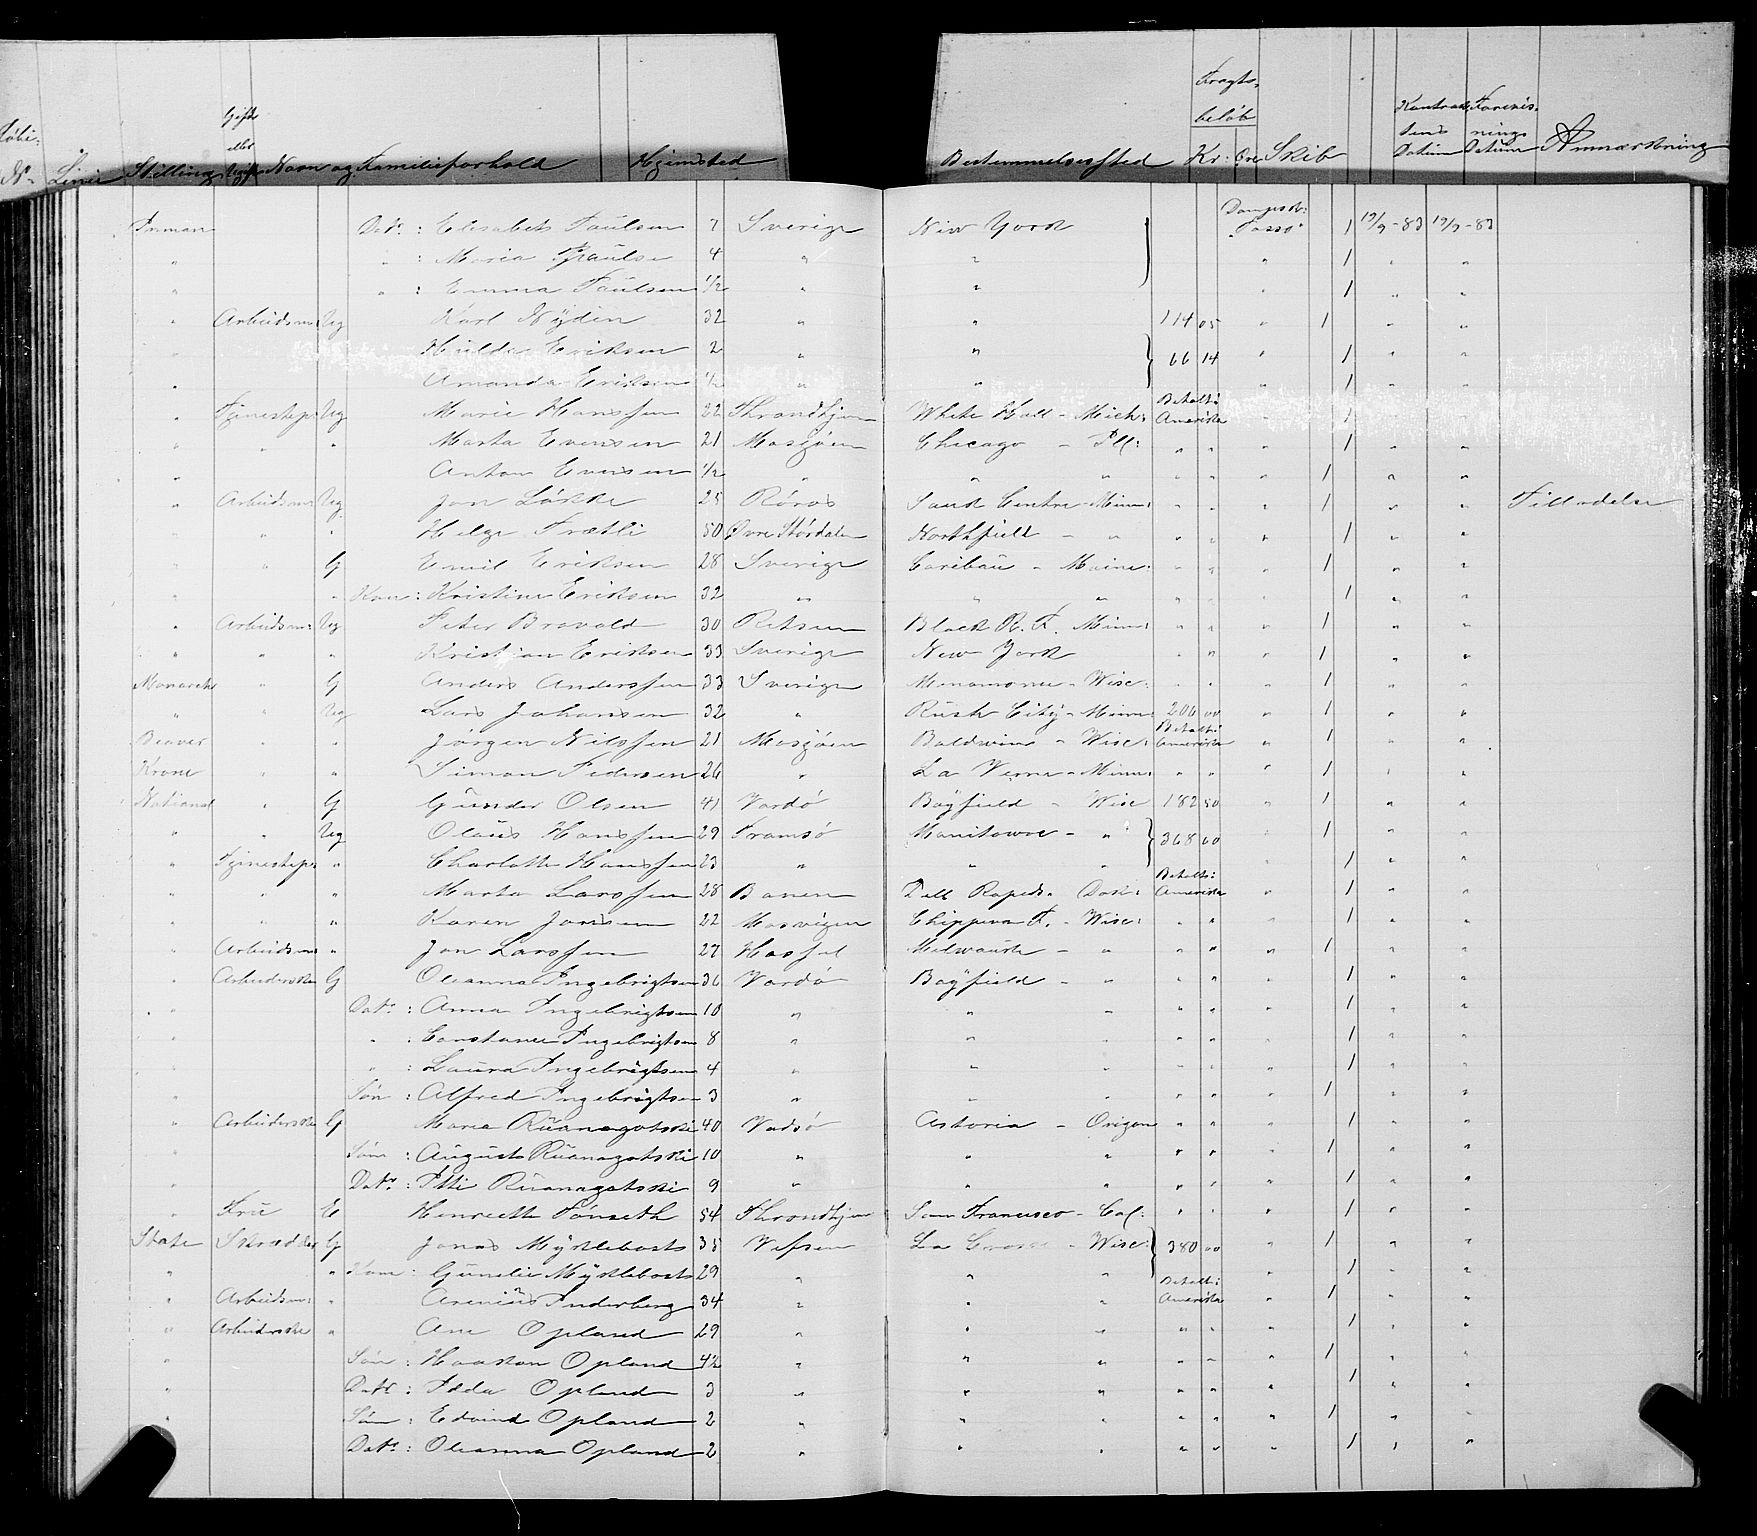 Løbe- N: Linie Stilling Gift eller Ugift Navn og Familieforhold Hjemsted Bestemmelsessted Fragtbeløb Kr: Øre Skib Datum Datum Anmærkning
Inman Datr: Elisabets Paulsen 7 Sverige New York Dampsk: "Tasso" 1 19/9-83 19/9-83
" " : Maria Paulse 4 " " " 1 " "
" " : Emma Paulsen 1/2 " " " 1 " "
" Arbeidsm: Ug Karl Nydin 32 " " 114 05 " 1 " "
" Hulda Eriksen 2 " " 66 14 " 1 " "
" Amanda Eriksen 1/2 " " " 1 " "
" Tjenestep: Ug Marie Hanssen 22 Throndhjem White Hall - Mich: Betalt i Amerika " 1 " "
" " " Marta Evensen 21 Mosjøen Chicago - Ill: " " " 1 " "
" Anton Evensen 1/2 " " " " " " 1 " "
" Arbeidsm: Ug Jon Løkke 25 Røros Sauk Centre - Minn: " " " 1 " " Tilladelse
" " " Helge Trætli 50 Øvre Størdalen Northfield - " " " " 1 " "
" " G Emil Eriksen 28 Sverige Caribau - Maine: " " " 1 " "
" " Kone: Kristine Eriksen 32 " " " " " " 1 " "
" Arbeidsm: Ug Peter Bravold 30 Black R. F. Minn: " " " 1 " "
" " " Kristian Eriksen 33 Sverige New York " " " 1 " "
Monarch " G Anders Anderssen 33 Sverige Menomonee - Wisc: " " " 1 " "
" " Ug Lars Johansen 32 " Rush City - Minn: 206 00 " 1 " "
Beaver " " Jørgen Nilssen 21 Mosjøen Baldwin - Wisc: Betalt i Amerika " 1 " "
Krone " " Simon Pedersen 26 " La Verne - Minn: " " " 1 " "
National " G Gunder Olsen 41 Vardø Bayfield - Wisc 182 50 " 1 " "
" " Ug Olaus Hanssen 29 Tromsø Manitowoc - " 368 60 " 1 " "
" Tjenestep: " Charlotte Hanssen 23 " " " " 1 " "
" " " Marta Larssen 28 Banen Dell Rapids - Dak: Betalt i Amerika " 1 " "
" " " Karen Jonsen 22 Mosvigen Chippewa F. - Wisc: " " " 1 " "
" Arbeidsm " Jon Larssen 27 Hassel Milwauke - " " " " 1 " "
" Arbeiderske G Oleanna Ingebrigtsen 36 Vardø Bayfield - " " " " 1 " "
" Datr: Anna Ingebrigtsen 10 " " " " " " 1 " "
" " : Constance Ingebrigtsen 8 " " " " " " 1 " "
" " : Laura Ingebrigtsen 4 " " " " " " 1 " "
" Søn: Alfred Ingebrigtsen 3 " " " " " " 1 " "
" Arbeiderske G Maria Ruanagotski 40 Vadsø Astoria - Origon " " " 1 " "
" Søn: August Ruanagotski 10 " " " " " " 1 " "
" Datr: Itti Ruanagotski 9 " " " " " " 1 " "
" Frue E Henriette Tønseth 54 Throndhjem San Francisco - Cal: " " " 1 " "
State Skrædder G Jonas Myklebosts 35 Vefsen La Crosse - Wisc: 380 00 " 1 " "
" " Kone: Gunelie Myklebosts 29 " " " " 1 " "
" Arbeidsm: " Arenius Inderberg 34 " " " Betalt i Amerika " 1 " "
" Arbeiderske " Ane Opland 29 " " " " " " 1 " "
" Søn: Haakon Opland 4 1/2 " " " " " " 1 " "
" Datr: Idda Opland 3 " " " " " " 1 " "
" Søn: Edvind Opland 2 " " " " " " 1 " "
" Datr: Oleanna Opland 2 " " " " " " 1 " "